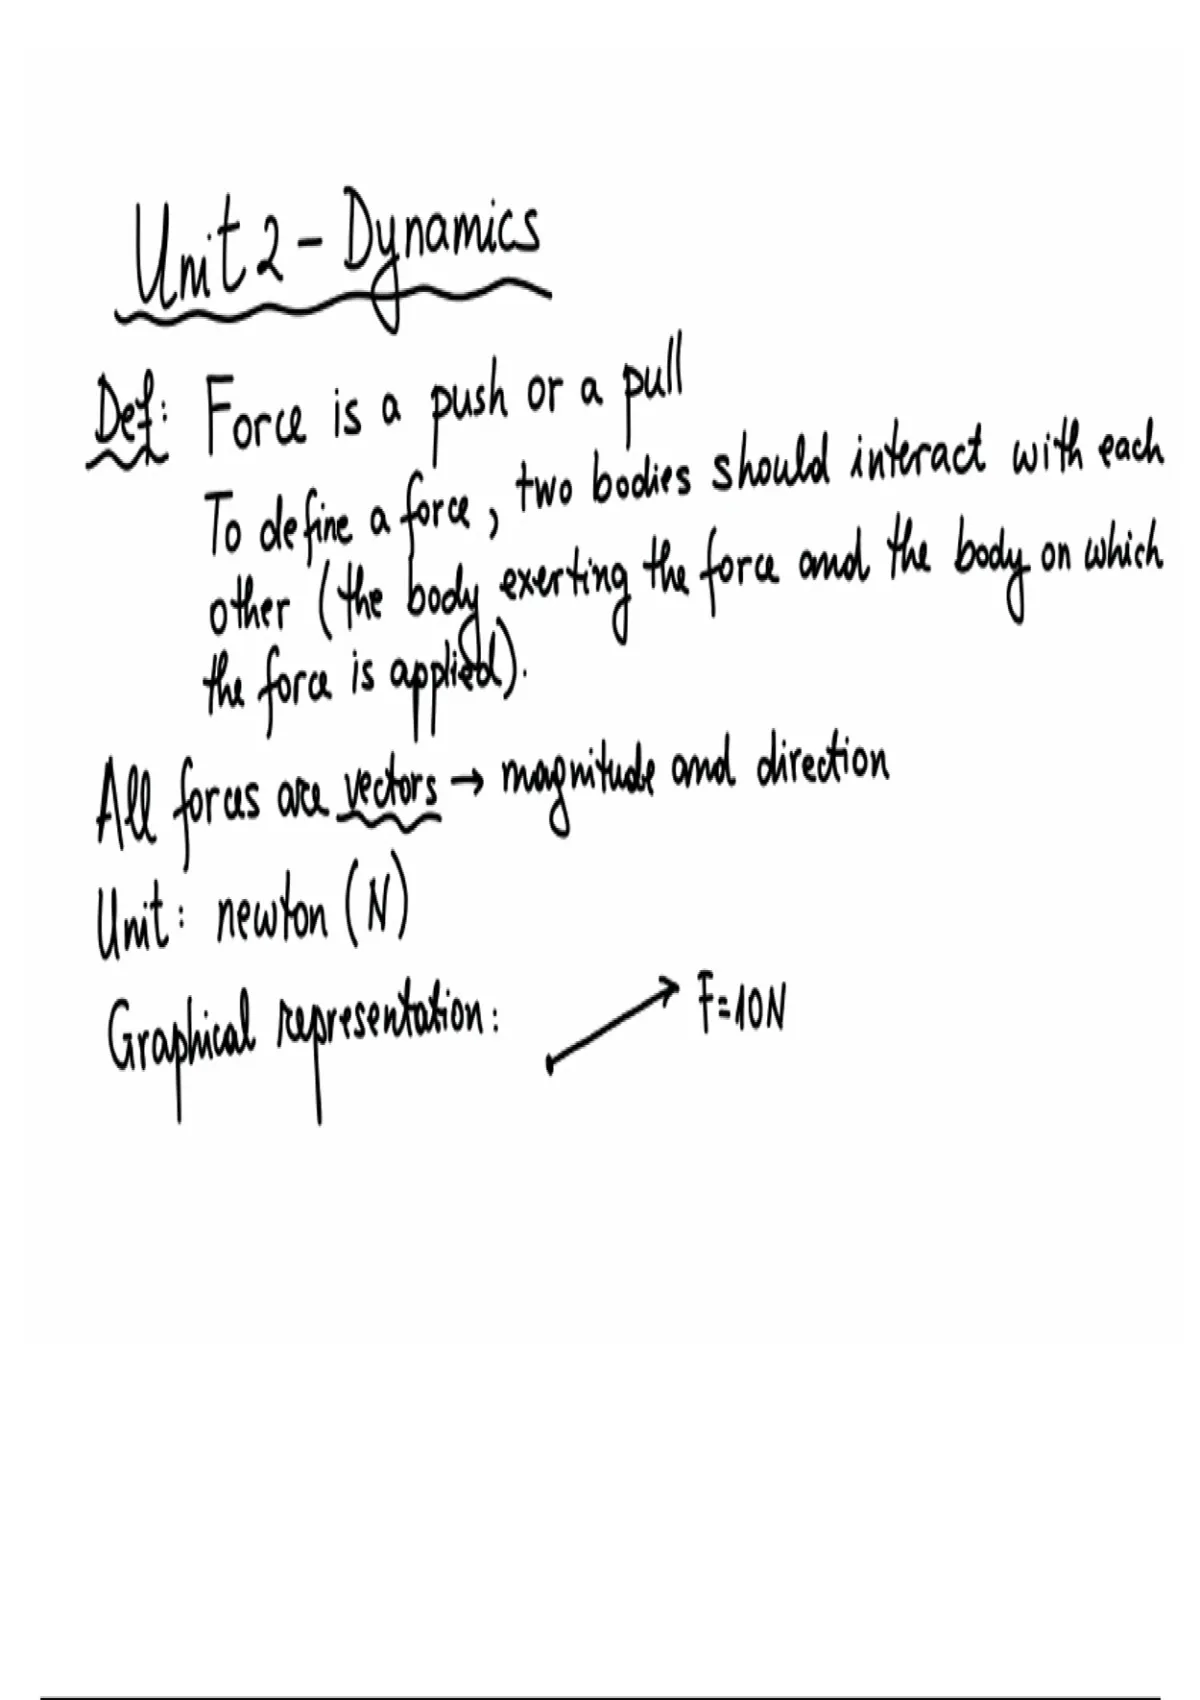 Unit 2 - Dynamics
Def: Force is a push or a pull
To define a force, two bodies should interact with each
other (the body exerting the force and the body on which
the force is applied).
All forces are vectors → magnitude and direction
Unit: newton (N)
Graphical representation: F=10N